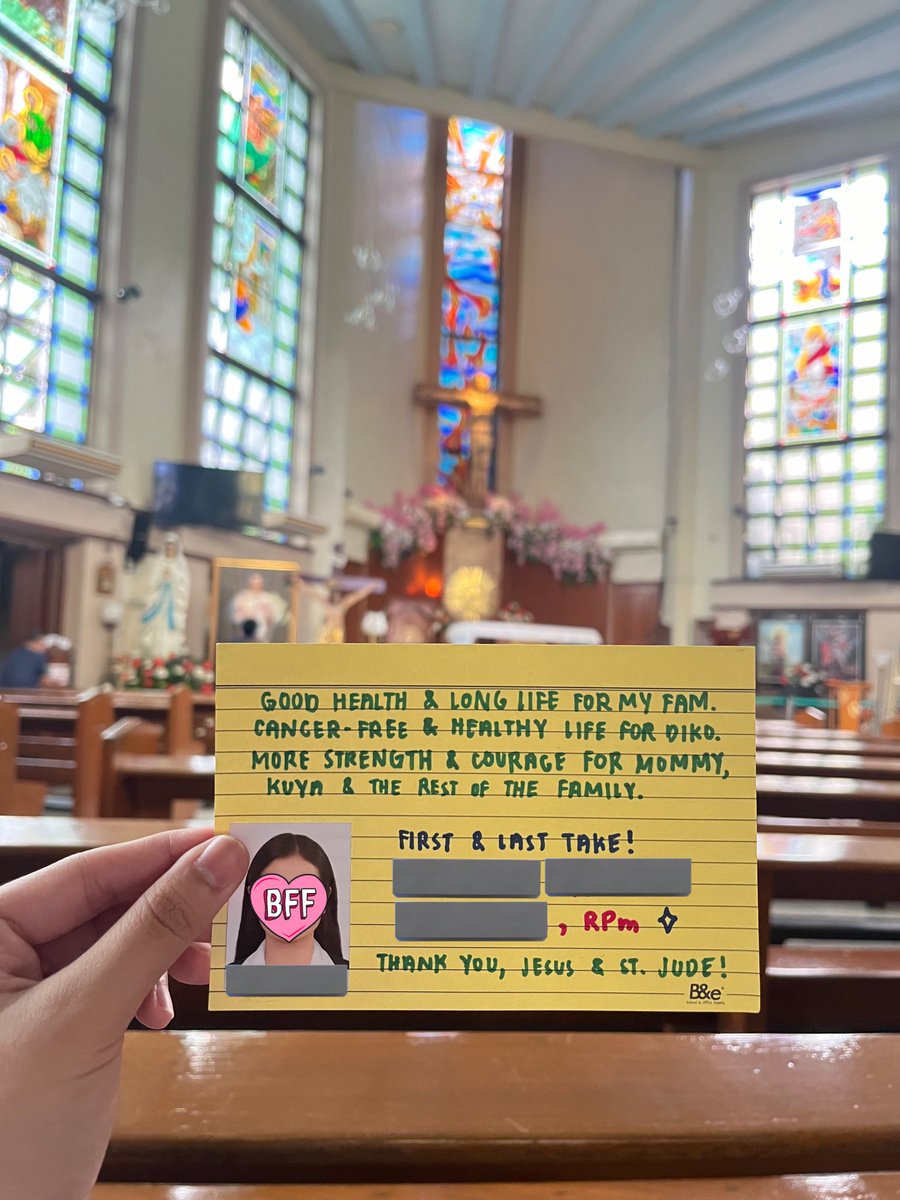 GOOD HEALTH & LONG LIFE FOR MY FAM.
CANCER-FREE & HEALTHY LIFE FOR DIKO.
MORE STRENGTH & COURAGE FOR MOMMY,
KUYA & THE REST OF THE FAMILY.
FIRST & LAST TAKE!
BFF
, RPm
THANK YOU, JESUS & ST. JUDE!
B&e
School & Office Supply